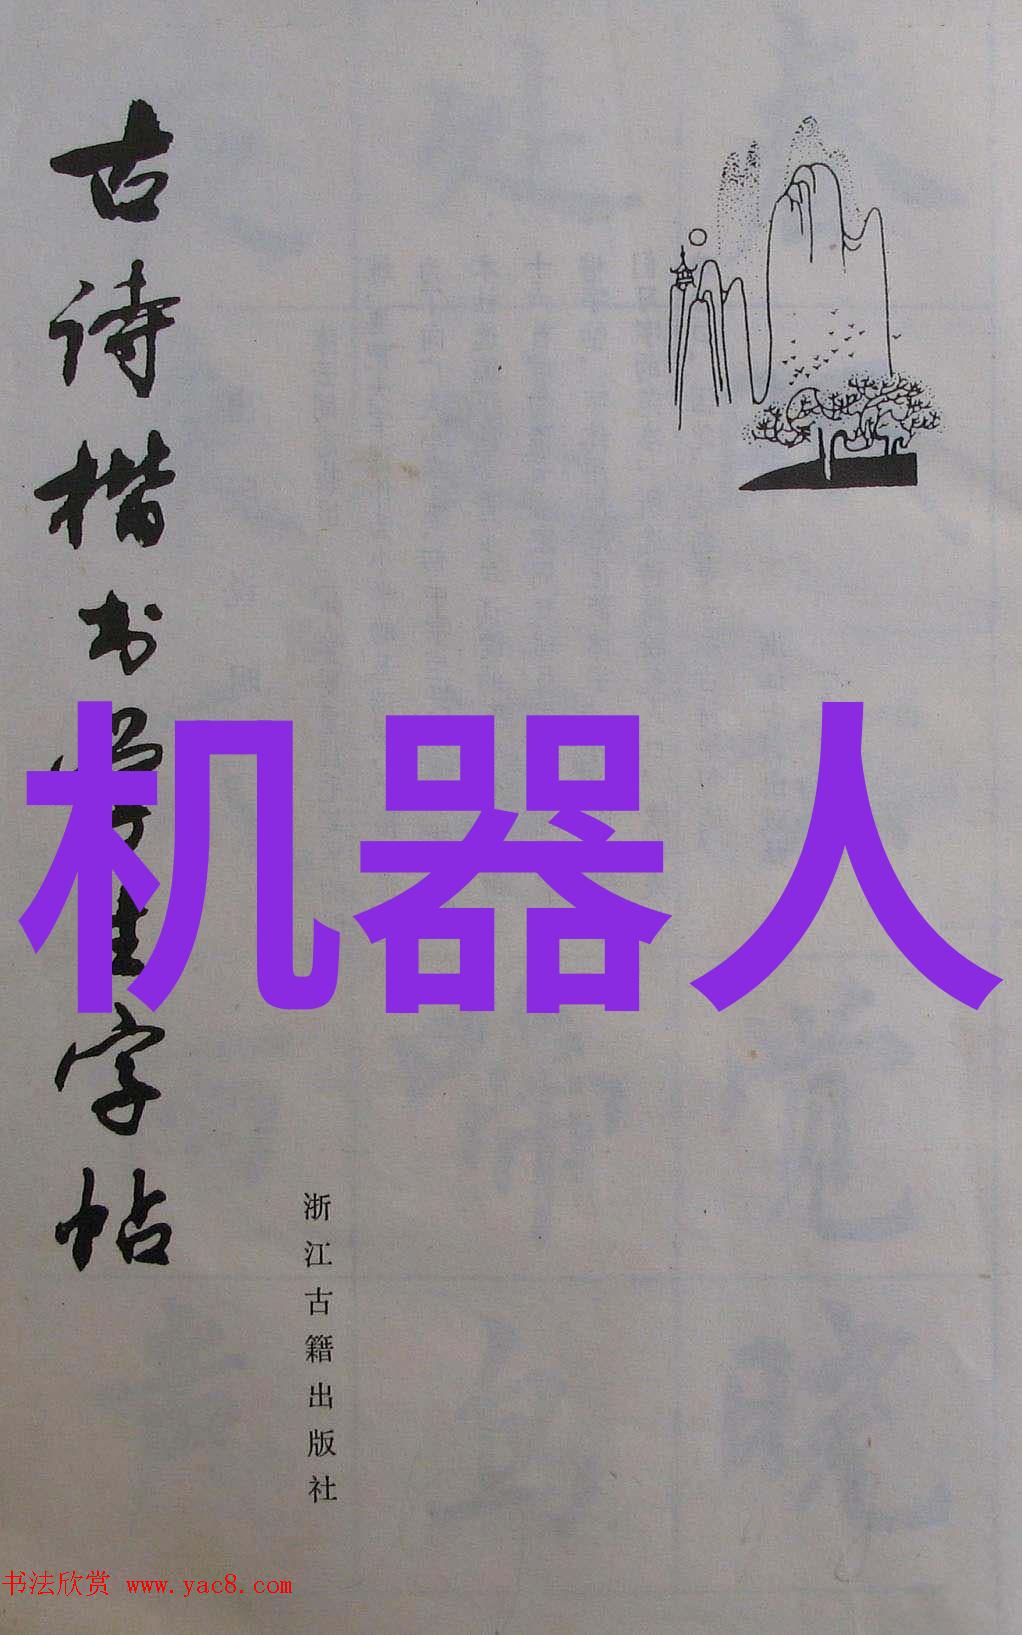 古诗楷书学生字帖
机器人
浙江古籍出版社
书法欣赏 www.yac8.com